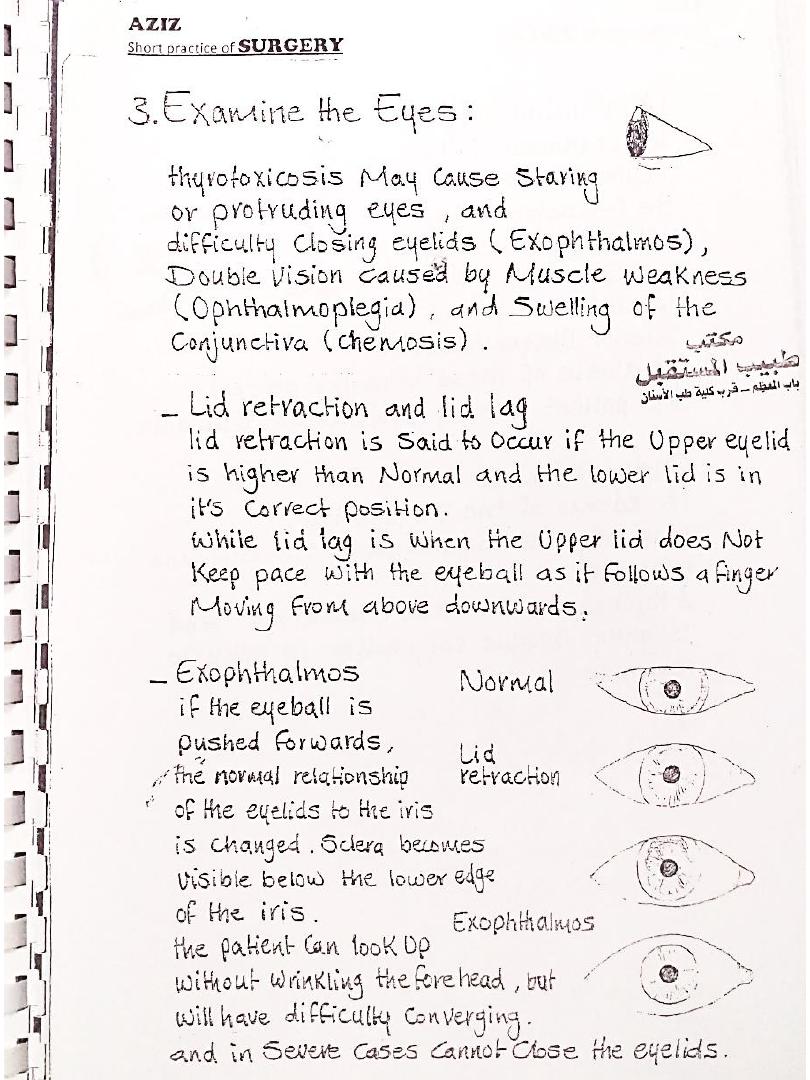 AZIZ
Short practice of SURGERY
3. Examine the Eyes :
thyrotoxicosis May Cause Staring
or protruding eyes , and
difficulty Closing eyelids ( Exophthalmos) ,
Double Vision Caused by Muscle weakness
(Ophthalmoplegia) , and Swelling of the
Conjunctiva (Chemosis) .
مكتب
طبيب المستقبل
باب المعظم - قرب كلية طب الأسنان
- Lid retraction and lid lag
lid retraction is Said to Occur if the Upper eyelid
is higher than Normal and the lower lid is in
it's Correct position.
While lid lag is when the Upper lid does Not
Keep pace with the eyeball as it Follows a finger
Moving From above downwards.
- Exophthalmos
if the eyeball is
pushed forwards,
the normal relationship
of the eyelids to the iris
is changed . Sclera becomes
Visible below the lower edge
of the iris .
the patient Can look Up
without wrinkling the forehead , but
will have difficulty Converging .
and in Severe Cases Cannot Close the eyelids .
Normal
Lid
retraction
Exophthalmos